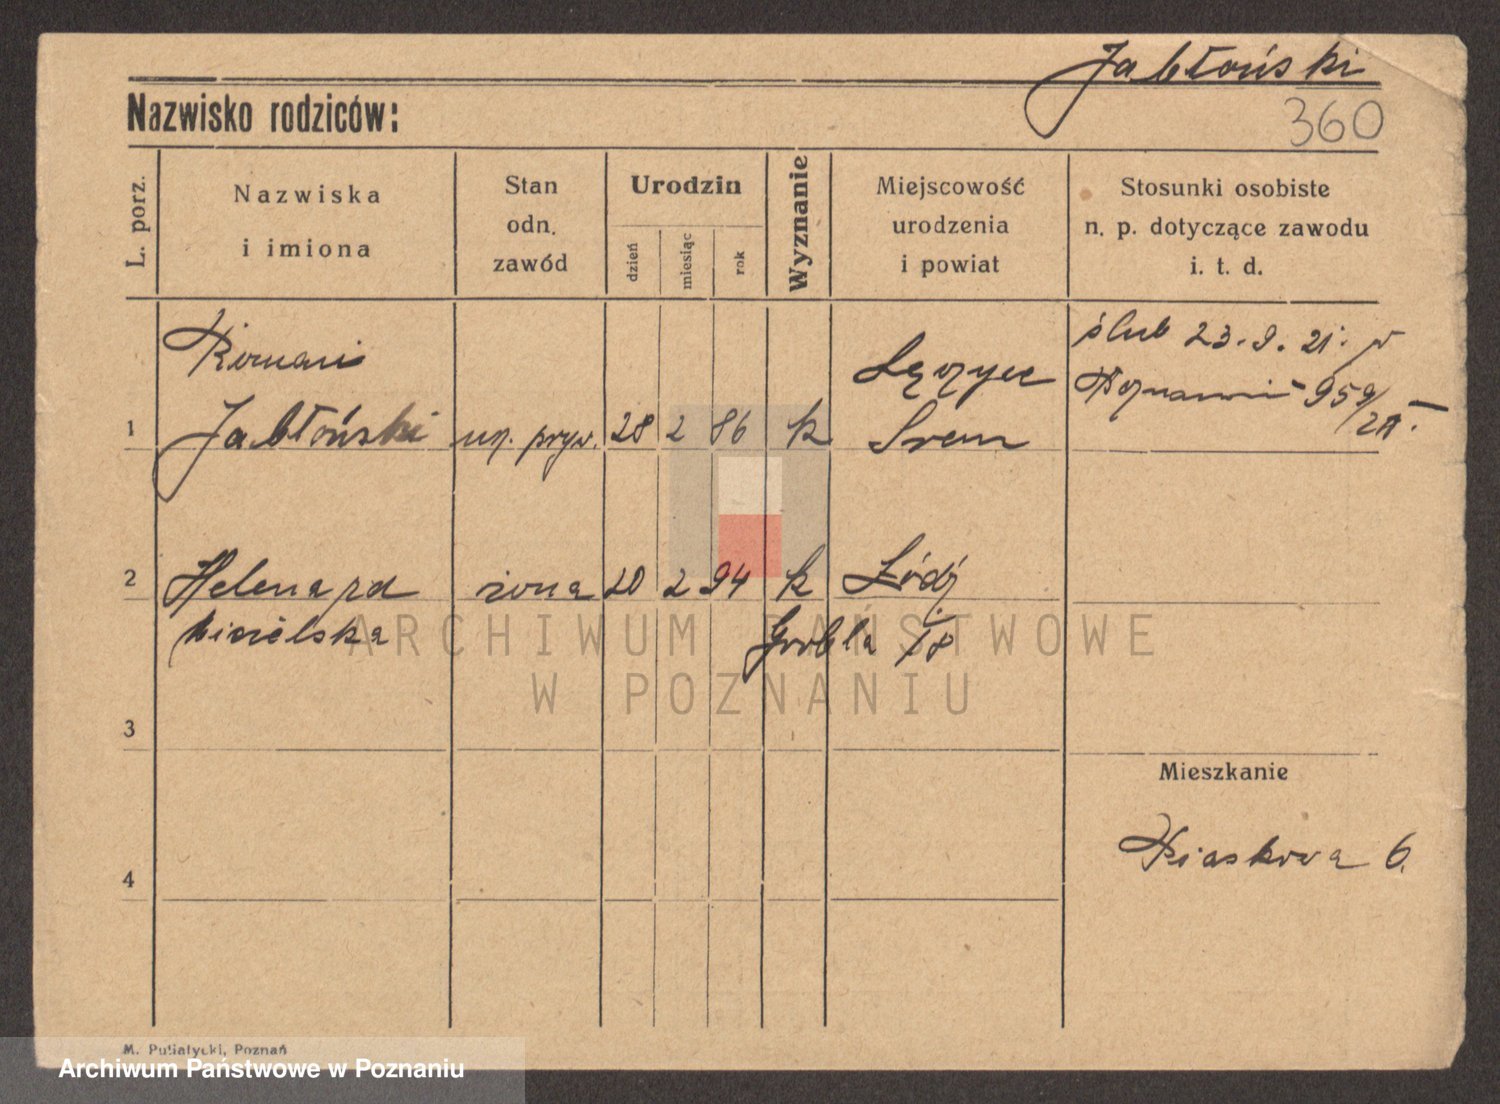 Jabłoński
360
Nazwisko rodziców:
L. porz.
Nazwiska
i imiona
Stan
odn.
zawód
Urodzin
dzień
miesiąc
rok
Wyznanie
Miejscowość
urodzenia
i powiat
Stosunki osobiste
n. p. dotyczące zawodu
i. t. d.
Roman
Łęczyce
ślub 23.9.21. w
Poznaniu 959/21
1 Jabłoński 28 2 86 k Śrem
2 Helena zd żona 20 2 94 k Łódź
Grobla 18
ARCHIWUM PAŃSTWOWE
W POZNANIU
3
Mieszkanie
Piaskowa 6.
4
M. Putiatycki, Poznań
Archiwum Państwowe w Poznaniu